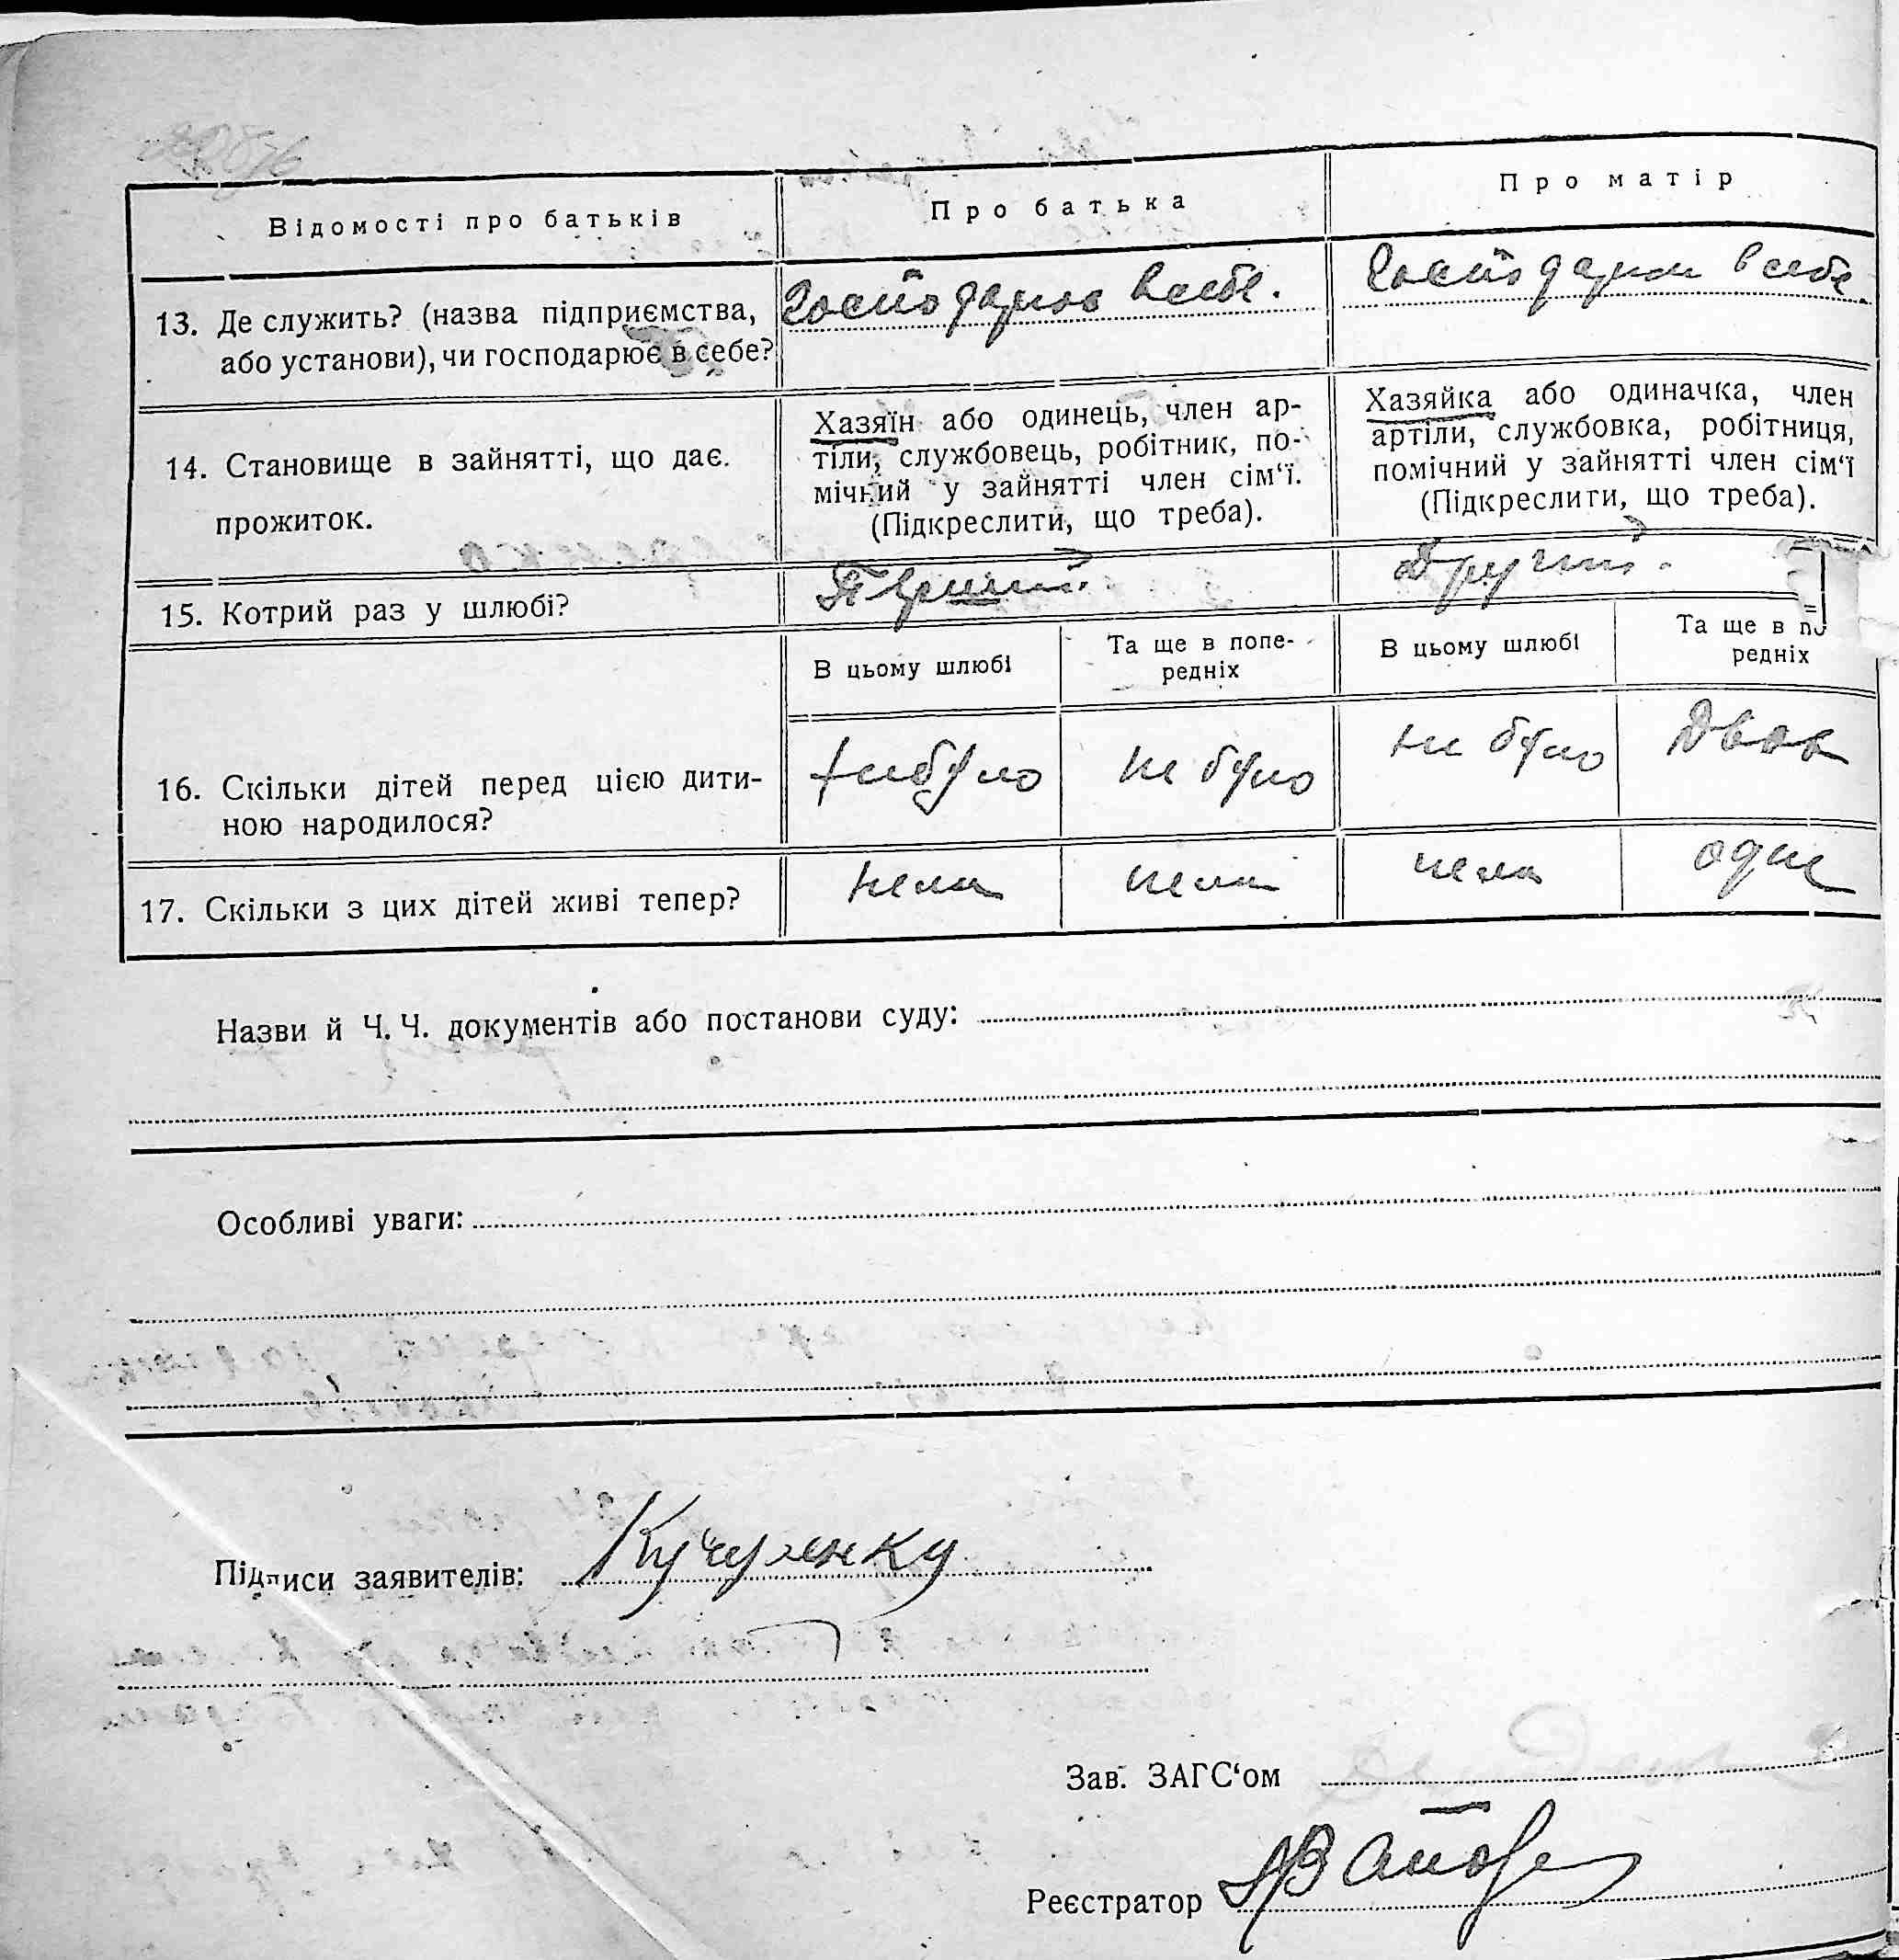 Відомості про батьків
Про батька
Про матір
13. Де служить? (назва підприємства,
або установи), чи господарює в себе?
Господарює в себе.
Господарює в себе.
14. Становище в зайнятті, що дає.
прожиток.
Хазяїн або одинець, член ар-
тіли, службовець, робітник, по-
мічний у зайнятті член сім‘ї.
(Підкреслити, що треба).
Хазяйка або одиначка, член
артіли, службовка, робітниця,
помічний у зайнятті член сім‘ї
(Підкреслити, що треба).
15. Котрий раз у шлюбі?
Перший.
Другий.
В цьому шлюбі
Та ще в попе-
редніх
В цьому шлюбі
Та ще в по
редніх
16. Скільки дітей перед цією дити-
ною народилося?
не було
не було
не було
Двоє
17. Скільки з цих дітей живі тепер?
нема
нема
нема
одне
Назви й Ч. Ч. документів або постанови суду:
Особливі уваги:
Підписи заявителів:
Зав. ЗАГС‘ом
Реєстратор